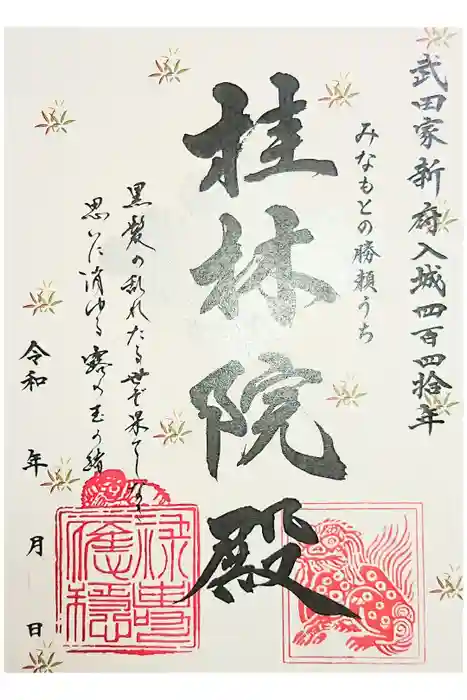 武田家新府入城四百四拾年
みなもとの勝頼うち
桂林院殿
黒髪の乱れたる世ぞ果てしなき
思いに消ゆる露の玉の緒
令和　年　月　日
祿壽
應穩